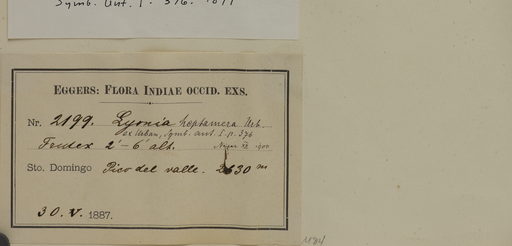 Symb. Ant. I. 376. 1899
EGGERS: FLORA INDIAE OCCID. EXS.
Nr. 2199. Lyonia heptamera Urb.
ex Urban, Symb. ant. I. p. 376
Frutex 2'–6' alt.
Sto. Domingo Pico del valle. 2630 m
30. V. 1887.